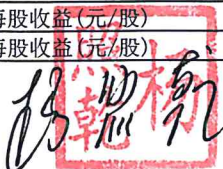 每股收益(元/股)
每股收益(元/股)
杨照乾